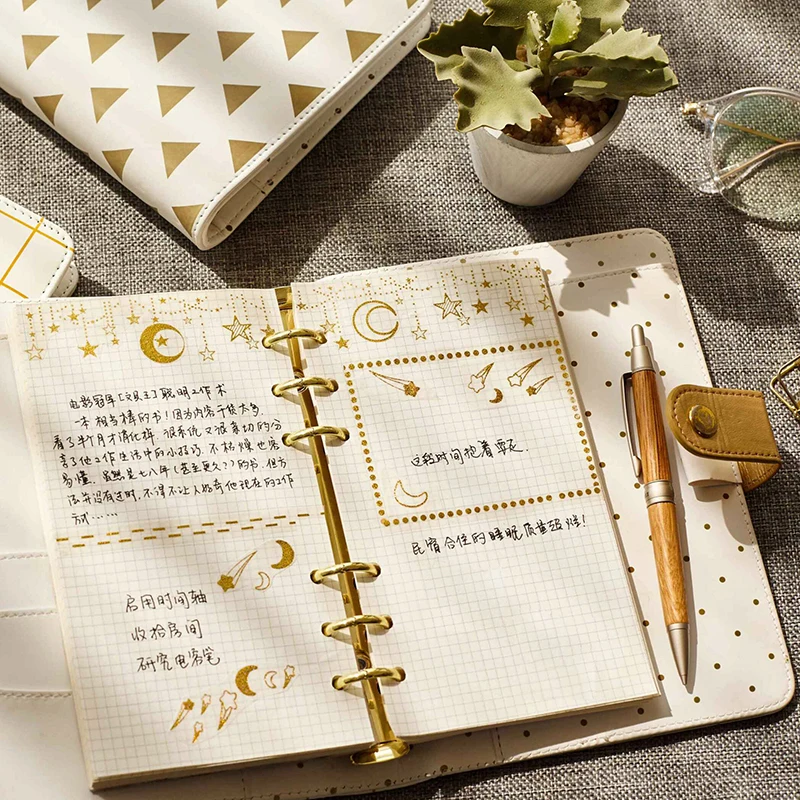 电影冠军[文具王]聪明工作术
一本相当棒的书！因为内容干货太多，
看了半个月才消化掉 很系统又很真切的分
享了他工作生活中的小技巧，不枯燥也容
易懂。虽然是七八年(甚至更久?)的书，但方
法并没有过时，不得不让人好奇他现在的工作
方式……
启用时间轴
收拾房间
研究电容笔
这段时间抱着
民宿合住的睡眠质量超烂！